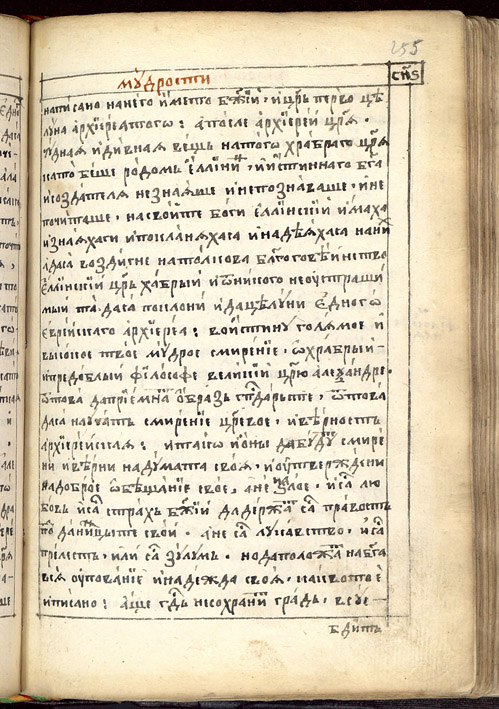 255
мꙋ́дрости
сн҃ѕ
написано нанего имѐто бж҃їй · ицр҃ь перво цѣ
лꙋна архїереатогѡ : апосле архїерей цр҃ѧ ·
чꙋднаѧ идивнаѧ вещь натогѡ храбраго цр҃ѧ
като беше родомь еллинⷩ҇ъ, иистиннаго бг҃а
исоздателѧ незнаѧше инепознаваше, ине
почиташе, насвоите боги еллинскїи имаха
изнаѧхаги ипоклaнѧхасѧ инадѣѧхасѧ нани
адаса воздигне натолкова благоговѣинство
еллинскїи цр҃ь храбрый иѡникого неꙋстраши
мый та даса поклони идацѣлꙋни едногѡ
еврейскаго архїереа : воистинꙋ голѧмое и
высокое твое мꙋдрое смиренїе, ѡхрабрый
ипредоблый фїлософе великїй цр҃ю алеѯандре
ѿтова даприемнатъ ѡбразъ гпⷭ҇дарите, ѿтова
даса наꙋчатъ смиренїе цр҃евое, ивѣрность
архїерейскаѧ : итагиѡ ионы дабꙋдꙋⷮ смире
ни ивѣрни надꙋмата своѧ, иꙋтверждени
надоброе ѡбѣщанїе свое, ане назлое, исᾶ лю
бовь исᾶ страхъ бж҃їй дадержаⷮ сᾶ правость
по данїците свои · ане сᾶ лꙋкавство, исᾶ
прелесть, или сᾶ зꙋлꙋмь · нодаположаⷮ набг҃а
всѧ ꙋпованїе инадежда своѧ, каквото е
иписано : аще гдⷭ҇ь несохранитъ градъ, всꙋе
бдитъ